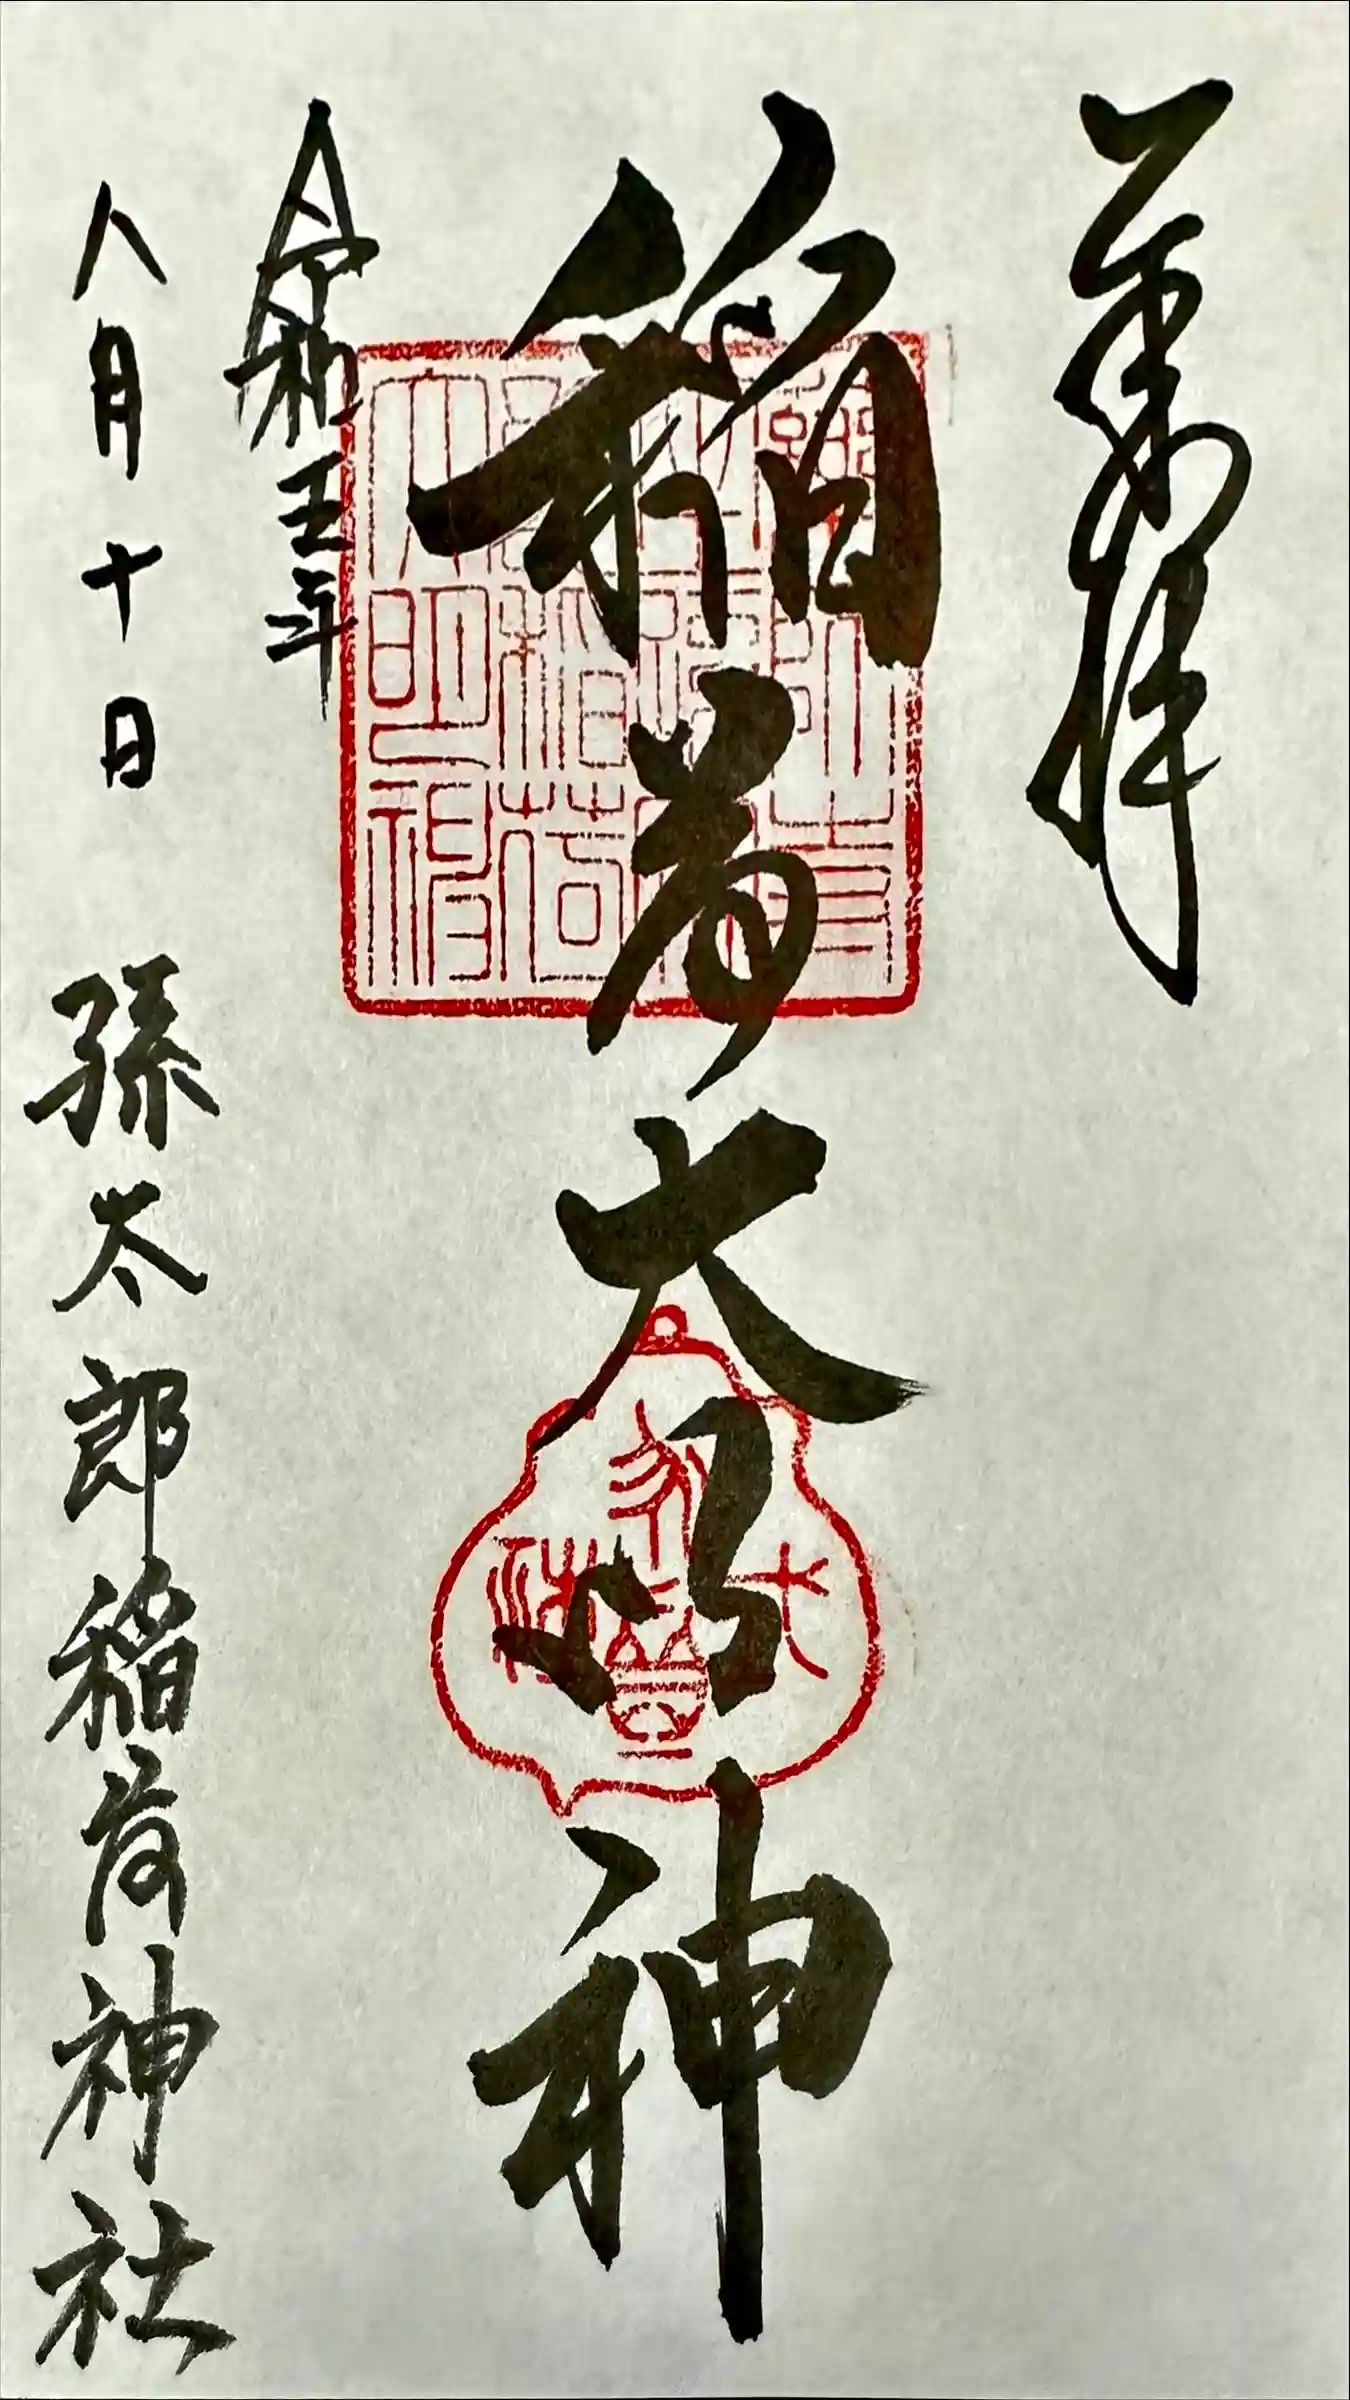 奉拝
稲荷大明神
令和五年
八月十日 孫太郎稲荷神社